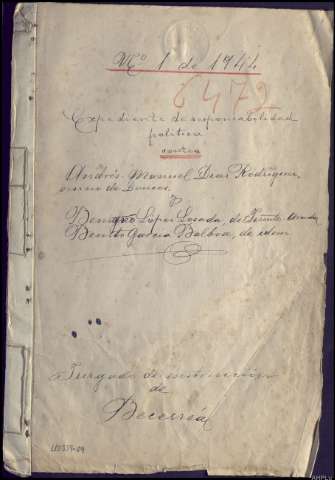 Nº 1 de 1944
6472
Expediente de responsabilidad
politica
contra
Andrés Manuel Diaz Rodriguez,
vecino de Doncos.
y
Benigno López Losada de
Benito Garcia Balboa, de idem
Juzgado de instrucción
de
Becerreá
AHPLU